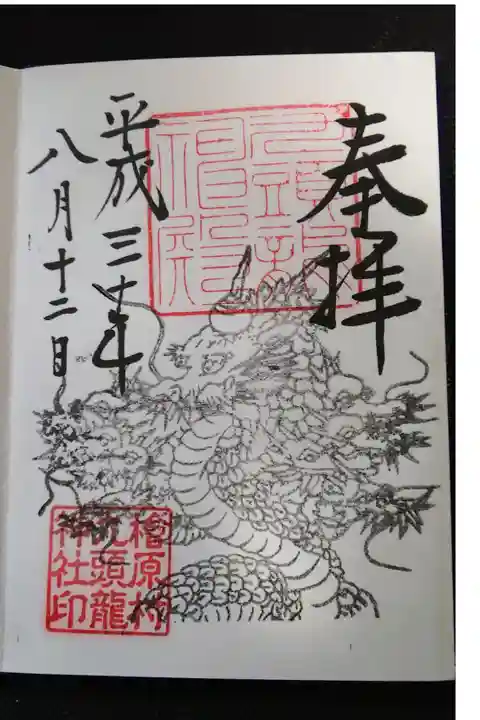 奉拝
平成三十年
八月十二日
檜原村
九頭龍
神社印